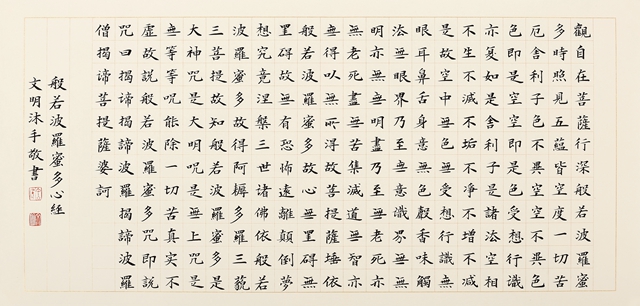 觀自在菩薩行深般若波羅蜜
多時照見五蘊皆空度一切苦
厄舍利子色不異空空不異色
色即是空空即是色受想行識
亦復如是舍利子是諸法空相
不生不滅不垢不淨不增不減
是故空中無色無受想行識無
眼耳鼻舌身意無色聲香味觸
法無眼界乃至無意識界無無
明亦無無明盡乃至無老死亦
無老死盡無苦集滅道無智亦
無得以無所得故菩提薩埵依
般若波羅蜜多故心無罣礙無
罣礙故無有恐怖遠離顛倒夢
想究竟涅槃三世諸佛依般若
波羅蜜多故得阿耨多羅三藐
三菩提故知般若波羅蜜多是
大神咒是大明咒是無上咒是
無等等咒能除一切苦真實不
虛故說般若波羅蜜多咒即說
咒曰揭諦揭諦波羅揭諦波羅
僧揭諦菩提薩婆訶
般若波羅蜜多心經
文明沐手敬書